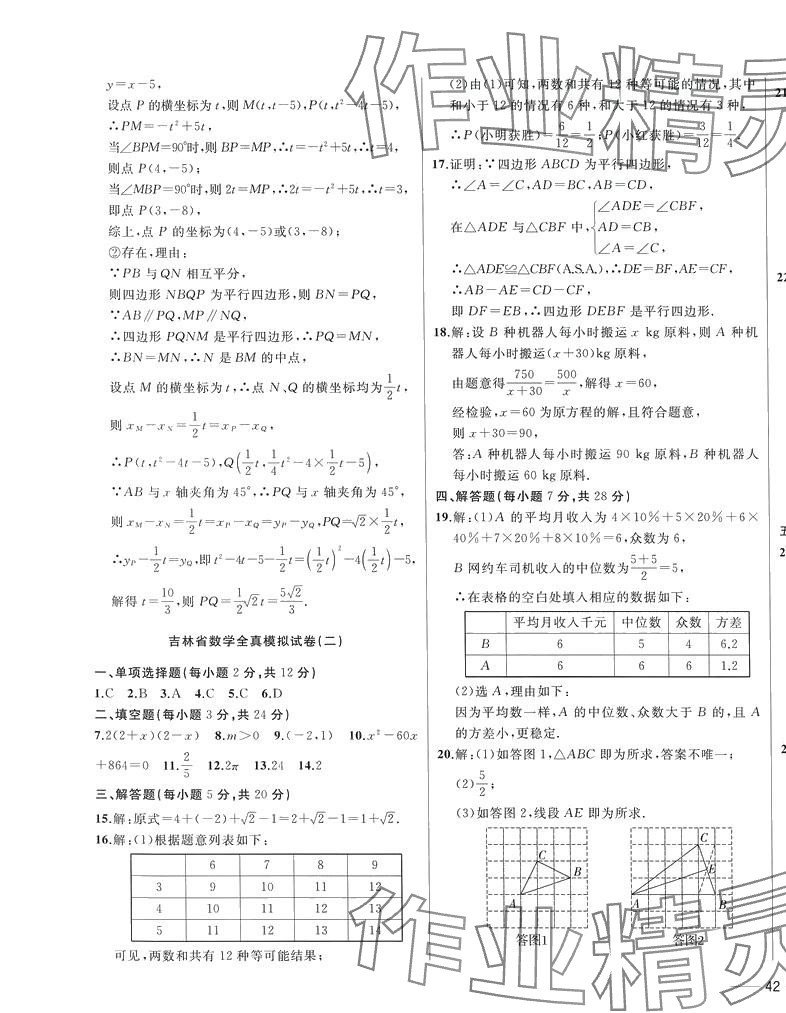 y=x-5,
设点 P 的横坐标为 t,则 M(t,t-5),P(t,t²-4t-5),
∴PM=-t²+5t,
当∠BPM=90°时,则 BP=MP,∴t=-t²+5t,∴t=4,
则点 P(4,-5);
当∠MBP=90°时,则 2t=MP,∴2t=-t²+5t,∴t=3,
即点 P(3,-8),
综上,点 P 的坐标为(4,-5)或(3,-8);
②存在,理由:
∵PB 与 QN 相互平分,
则四边形 NBQP 为平行四边形,则 BN=PQ,
∵AB∥PQ,MP∥NQ,
∴四边形 PQNM 是平行四边形,∴PQ=MN,
∴BN=MN,∴N 是 BM 的中点,
设点 M 的横坐标为 t,∴点 N、Q 的横坐标均为 1/2 t,
则 x_M-x_N=1/2 t=x_P-x_Q,
∴P(t,t²-4t-5),Q(1/2 t,1/4 t²-4×1/2 t-5),
∵AB 与 x 轴夹角为 45°,∴PQ 与 x 轴夹角为 45°,
则 x_M-x_N=1/2 t=x_P-x_Q=y_P-y_Q,PQ=√2×1/2 t,
∴y_P-1/2 t=y_Q,即 t²-4t-5-1/2 t=(1/2 t)²-4(1/2 t)-5,
解得 t=10/3,则 PQ=1/2 √2 t=5√2/3.
吉林省数学全真模拟试卷(二)
一、单项选择题(每小题 2 分,共 12 分)
1.C 2.B 3.A 4.C 5.C 6.D
二、填空题(每小题 3 分,共 24 分)
7.2(2+x)(2-x) 8.m>0 9.(-2,1) 10.x²-60x
+864=0 11.2/5 12.2π 13.24 14.2
三、解答题(每小题 5 分,共 20 分)
15.解:原式=4+(-2)+√2-1=2+√2-1=1+√2.
16.解:(1)根据题意列表如下:
6 7 8 9
3 9 10 11 12
4 10 11 12 13
5 11 12 13 14
可见,两数和共有 12 种等可能结果;
(2)由(1)可知,两数和共有 12 种等可能的情况,其中
和小于 12 的情况有 6 种,和大于 12 的情况有 3 种,
∴P(小明获胜)=6/12=1/2;P(小红获胜)=3/12=1/4.
17.证明:∵四边形 ABCD 为平行四边形,
∴∠A=∠C,AD=BC,AB=CD,
∠ADE=∠CBF,
在△ADE 与△CBF 中,{AD=CB,
∠A=∠C,
∴△ADE≌△CBF(A.S.A.),∴DE=BF,AE=CF,
∴AB-AE=CD-CF,
即 DF=EB,∴四边形 DEBF 是平行四边形.
18.解:设 B 种机器人每小时搬运 x kg 原料,则 A 种机
器人每小时搬运(x+30)kg 原料,
由题意得 750/(x+30)=500/x,解得 x=60,
经检验,x=60 为原方程的解,且符合题意,
则 x+30=90,
答:A 种机器人每小时搬运 90 kg 原料,B 种机器人
每小时搬运 60 kg 原料.
四、解答题(每小题 7 分,共 28 分)
19.解:(1)A 的平均月收入为 4×10%+5×20%+6×
40%+7×20%+8×10%=6,众数为 6,
B 网约车司机收入的中位数为 (5+5)/2=5,
∴在表格的空白处填入相应的数据如下:
平均月收入千元 中位数 众数 方差
B 6 5 4 6.2
A 6 6 6 1.2
(2)选 A,理由如下:
因为平均数一样,A 的中位数、众数大于 B 的,且 A
的方差小,更稳定.
20.解:(1)如答图 1,△ABC 即为所求,答案不唯一;
(2)5/2;
(3)如答图 2,线段 AE 即为所求.
C
B
A
答图1
C
E
A
B
答图2
21
22
五
2
2
42
作业精灵
作业精灵